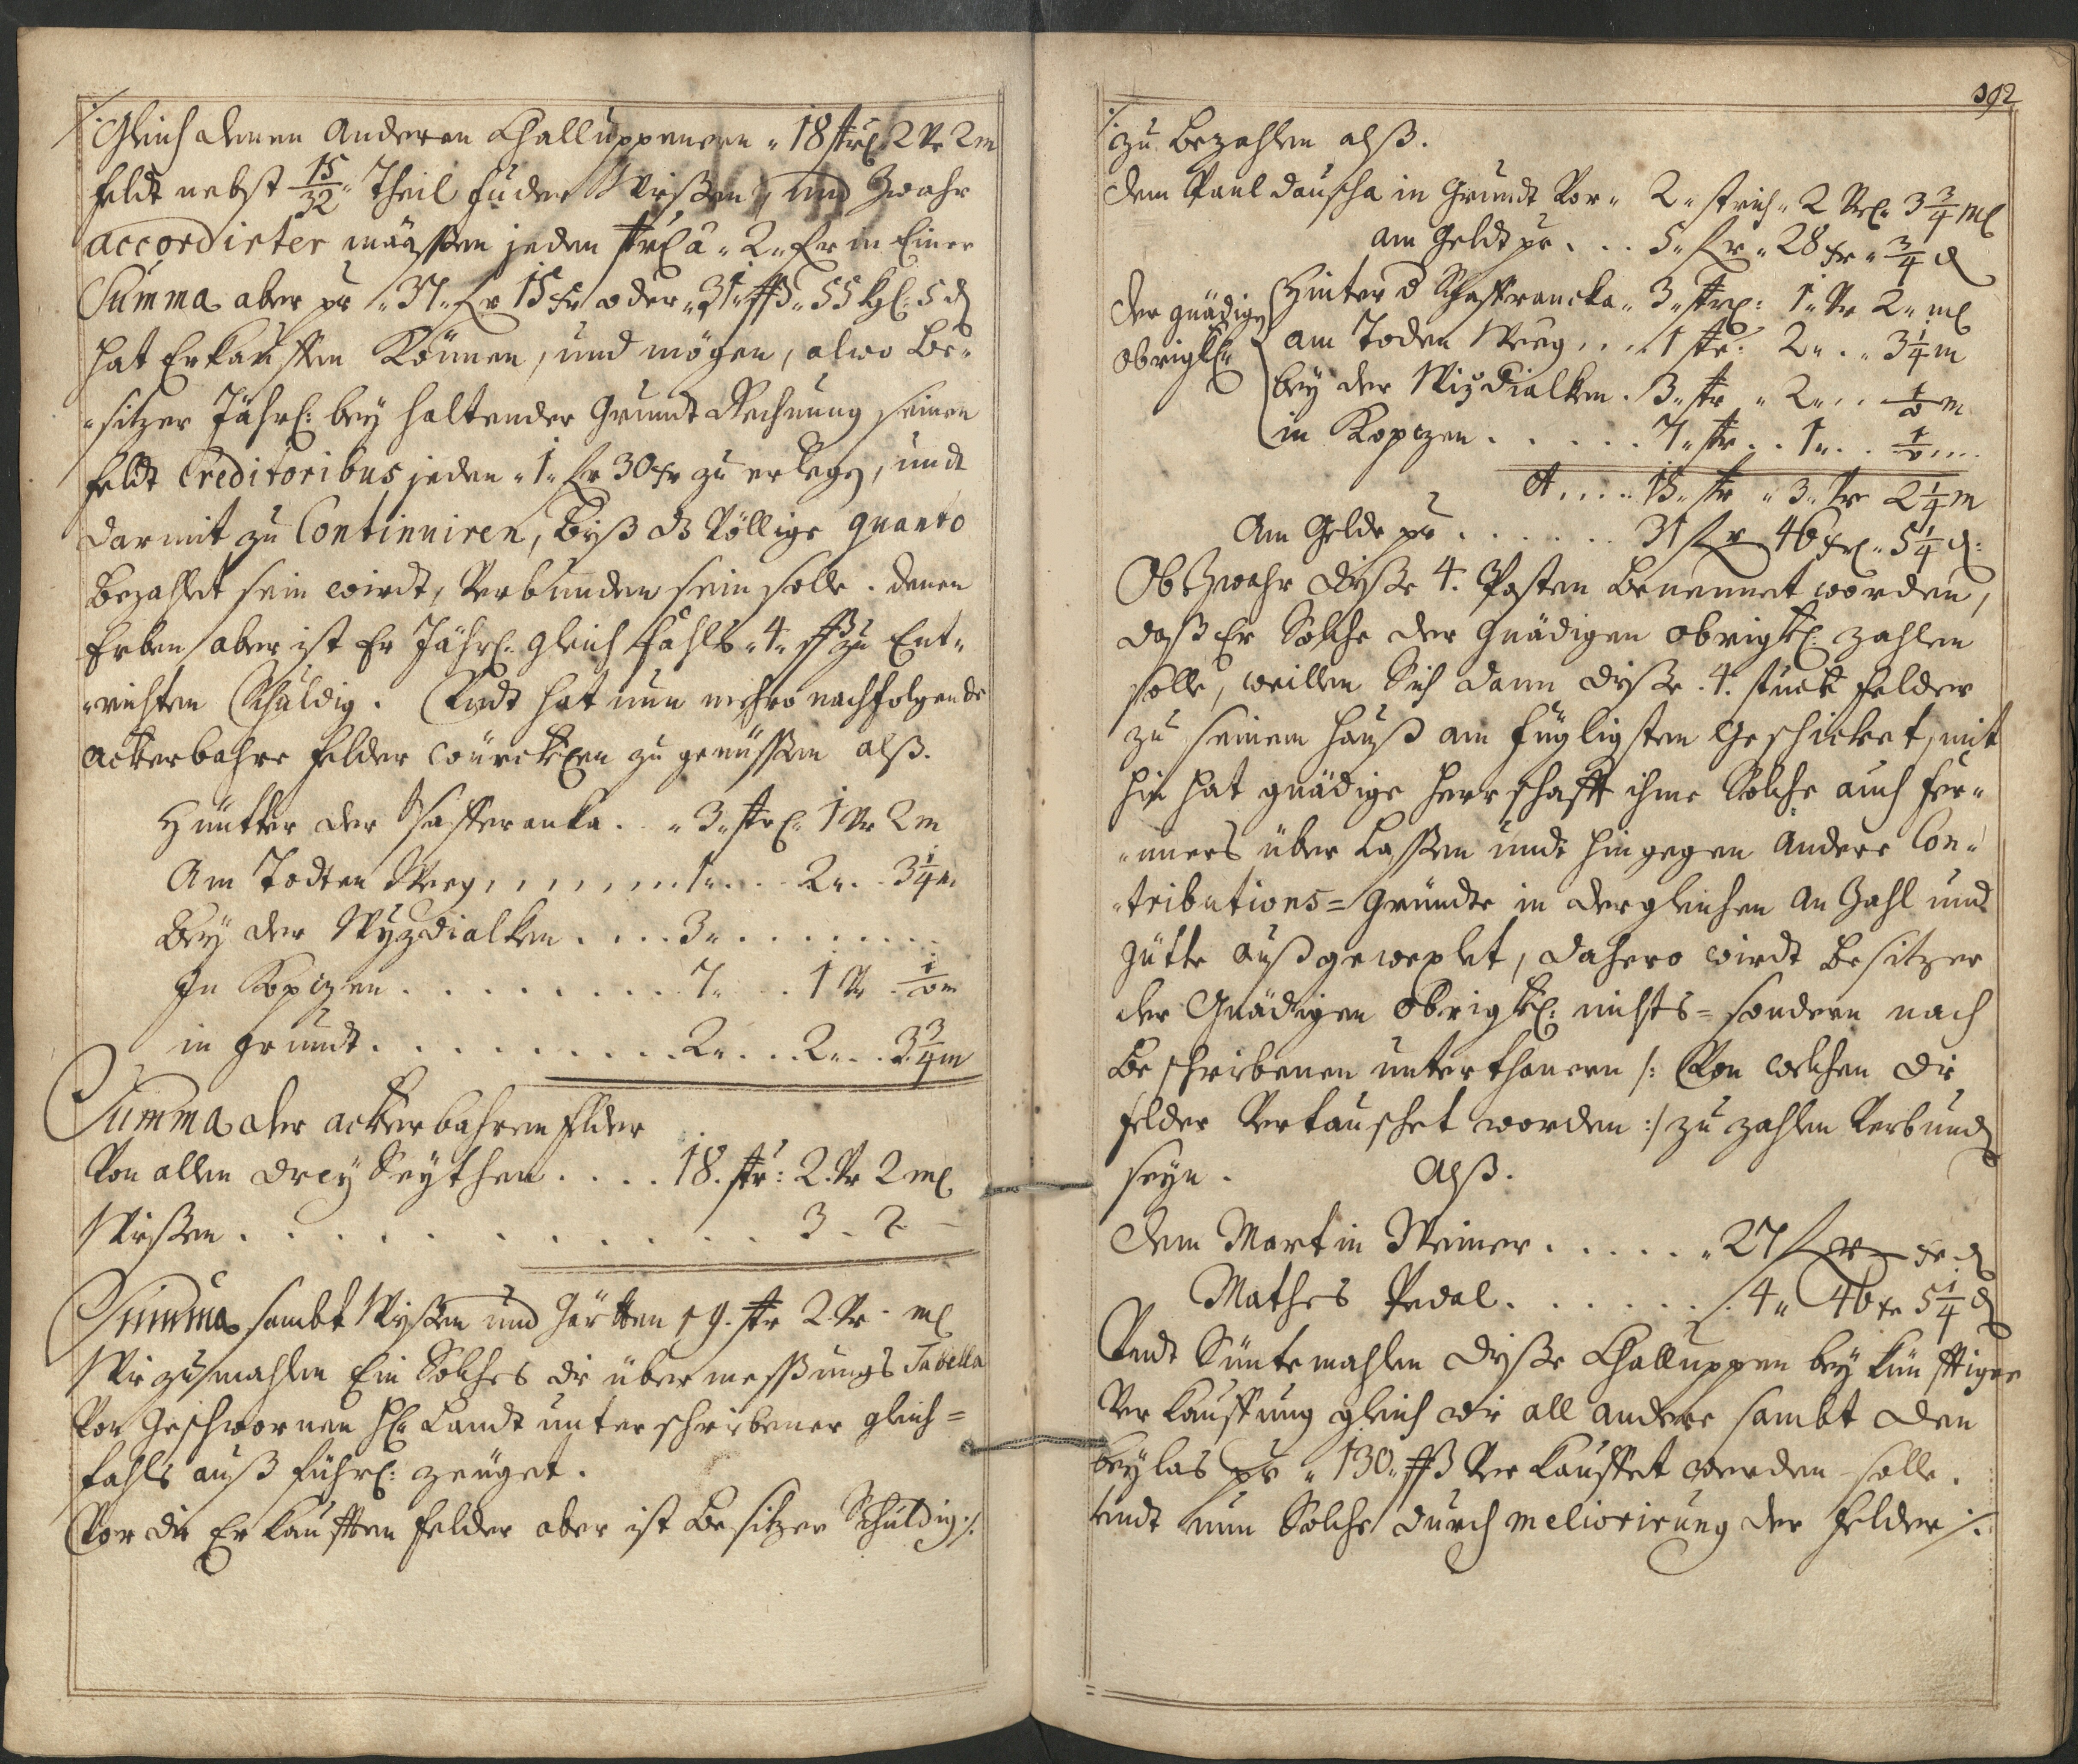 Gleich denen Anderen Challuppenern „ 18 strl 2 Vr 2 m
feldt nebst 15/32 „ Theil fuder Wießen, und Zwahr
accordirter määssen jeden strl â „ 2 „ fr in Einer
Summa aber pr „ 37 „ fr 15 xr oder „ 31 „ ßß „ 55 kgl: 5 d
hat Erkauffen Können, und mögen, alwo Be„
„sitzer Jährl: bey haltender Grundt Rechnung seinen
feldt Creditoribus jeden „ 1 „ fr 30 xr zu erlegen, undt
darmit zu Continuiren, biß das Völlige quanto
bezahlt sein wirdt, Verbunden sein solle. denen
Erben aber ist Er Jährl: gleich fahls „ 4 „ ßß zu Ent„
„richten Schuldig. Undt hat nun mehro nachfolgende
ackerbahre felder würcklen zu genüssen alß.
Hüntter der Safferanka . . „ 3 „ strl: 1 Vr 2 m
Am Todten Weeg, , , , , , , 1 „ . . 2 „ . . 3 1/4 m
Bey der Wyzdialken . . . . 3 „ . . . . . . .
In Kopizen . . . . . . . . . 7 „ . . 1 Vr
in Grundt . . . . . . . . . 2 „ . . . 2 „ . . 3 3/4 m
Summa der ackerbahren felder
Von allen drey Seythen . . . . 18. str: 2. Vr 2 ml
Wießen . . . . . . . . . . . . 3 - 2 -
Summa sambt Wyßen und Gärtten 19. str 2. Vr - ml
Wie zumahlen Ein Solches die über messungs Tabella
Von Geschwornen H: Landt unterschribener gleich=
fahls auß führl: zeüget.
Vor die Erkaufften felder aber ist Besitzer Schuldig ./.
392
zu bezahlen alß.
dem Paul dauscha in Grundt Vor „ 2 „ strich „ 2 Vrl „ 3 3/4 ml
am Geldt pr . . . 5 „ fr „ 28 xr „ 3/4 d
der gnädigen
obrigkl:
Hinter d Schaffrancka „ 3 „ strl: 1 „ Vr 2 „ ml
am Toden Weeg . . . 1 str: 2 „ . „ 3 1/4 m
bey der Wizdialken . 3 „ str „ 2 „ . .
in Kopizen . . . . . 7 „ str . . 1 „ . .
15 „ str „ 3 „ Vr 2 1/4 m
Am Gelde pr . . . . . . 31 fr 46 xr „ 5 1/4 d:
Ob Zwahr dieße 4. Posten benennet worden,
daß Er Solche der Gnädigen obrigkl: zahlen
solle, weillen Sich dann diese .4. stuck felder
zu seinem Hauß am fügligsten Geschicket, mit
hin hat gnädige Herrschafft ihme Solche auch fer„
„ners über Lassen undt hingegen Andere Con„
„tributions=Gründte in dergleichen An Zahl und
Gütte Auß gewexlet, dahero wirdt besitzer
der Gnädigen obrigkl: nichts= sondern nach
beschribenen unterthanern /: Von welchen die
felder Vertauschet worden :/ zu zahlen Verbunden
seyn. Alß.
dem Martin Weiner . . . . . „ 27 fr — xr d
Mathes Pedal . . . . . . . 4 „ 46 xr 5 1/4 d
Undt Süntemahlen diese Challuppen bey künfftiger
Verkauffung gleich wie all andere sambt den
beylas pr „ 130 „ ßß Verkauffet werden solle.
undt nun Solche durch meliorirung der felder ./.